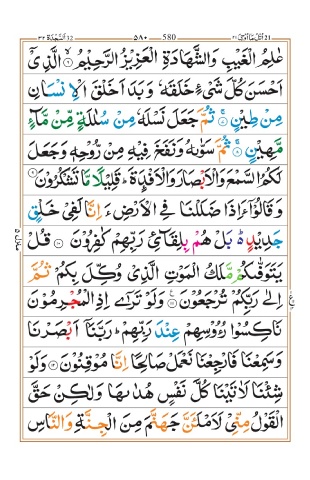 السجدة ٣٢ ٥٨٠ 580 اتل ما اوحي ٢١
عٰلِمُ الۡغَيۡبِ وَالشَّهَادَةِ الۡعَزِيۡزُ الرَّحِيۡمُ ۙ‏ الَّذِىۡۤ
اَحۡسَنَ كُلَّ شَىۡءٍ خَلَقَهٗ وَبَدَاَ خَلۡقَ الۡاِنۡسَانِ
مِنۡ طِيۡنٍ​ۚ ثُمَّ جَعَلَ نَسۡلَهٗ مِنۡ سُلٰلَةٍ مِّنۡ مَّآءٍ
مَّهِيۡنٍ​ۚ ثُمَّ سَوّٰٮهُ وَنَفَخَ فِيۡهِ مِنۡ رُّوۡحِهٖ​ وَجَعَلَ
لَكُمُ السَّمۡعَ وَالۡاَبۡصَارَ وَالۡاَفۡـِٕدَةَ​ ؕ قَلِيۡلًا مَّا تَشۡكُرُوۡنَ
وَقَالُوۡٓا ءَاِذَا ضَلَلۡنَا فِى الۡاَرۡضِ ءَاِنَّا لَفِىۡ خَلۡقٍ
جَدِيۡدٍ ؕ​ بَلۡ هُمۡ بِلِقَآئِ رَبِّهِمۡ كٰفِرُوۡنَ‏ قُلۡ
يَتَوَفّٰٮكُمۡ مَّلَكُ الۡمَوۡتِ الَّذِىۡ وُكِّلَ بِكُمۡ ثُمَّ
اِلٰى رَبِّكُمۡ تُرۡجَعُوۡنَ‏ وَلَوۡ تَرٰٓى اِذِ الۡمُجۡرِمُوۡنَ
نَاكِسُوۡا رُءُوۡسِهِمۡ عِنۡدَ رَبِّهِمۡؕ رَبَّنَاۤ اَبۡصَرۡنَا
وَسَمِعۡنَا فَارۡجِعۡنَا نَعۡمَلۡ صَالِحًـا اِنَّا مُوۡقِنُوۡنَ‏ وَلَوۡ
شِئۡنَا لَاٰتَيۡنَا كُلَّ نَفۡسٍ هُدٰٮهَا وَلٰـكِنۡ حَقَّ
الۡقَوۡلُ مِنِّىۡ لَاَمۡلَــٴَــنَّ جَهَنَّمَ مِنَ الۡجِنَّةِ وَالنَّاسِ